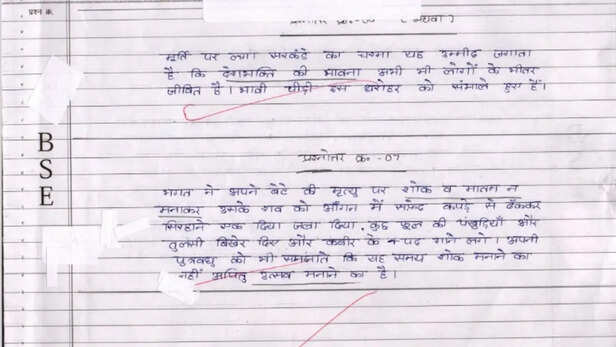 प्रश्न क्र.
प्रश्नोत्तर क्र.- (अथवा)
मूर्ति पर लगा सरकंडे का चश्मा यह उम्मीद जगाता
है कि देशभक्ति की भावना अभी भी लोगों के भीतर
जीवित है। भावी पीढ़ी इस धरोहर को संभाले हुए हैं।
B
S
E
प्रश्नोत्तर क्र. - 07
भगत ने अपने बेटे की मृत्यु पर शोक व मातम न
मनाकर उसके शव को आँगन में सफेद कपड़े से ढँककर
सिरहाने एक दिया जला दिया, कुछ फूल की पंखुड़ियाँ और
तुलसी बिखेर दिए और कबीर के पद गाने लगे। अपनी
पुत्रवधु को भी समझाते कि यह समय शोक मनाने का
नहीं अपितु उत्सव मनाने का है।